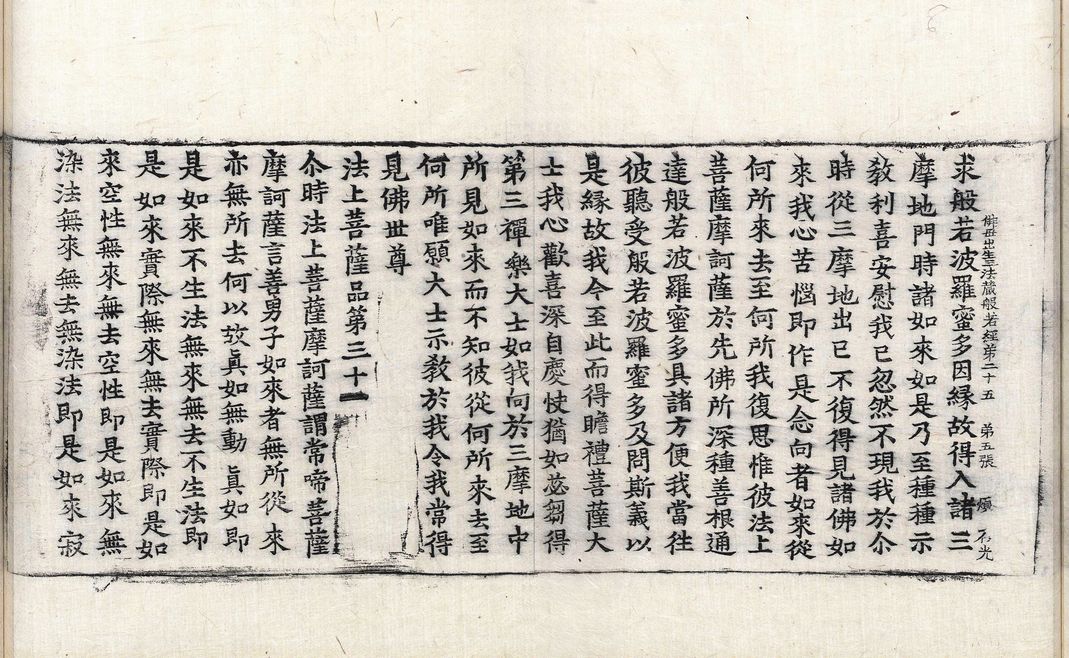 佛母出生三法藏般若經第二十五　第五張　頌　石光
求般若波羅蜜多因緣故得入諸三
摩地門時諸如來如是乃至種種示
教利喜安慰我已忽然不現我於尒
時從三摩地出已不復得見諸佛如
來我心苦惱即作是念向者如來從
何所來去至何所我復思惟彼法上
菩薩摩訶薩於先佛所深種善根通
達般若波羅蜜多具諸方便我當往
彼聽受般若波羅蜜多及問斯義以
是緣故我今至此而得瞻禮菩薩大
士我心歡喜深自慶快猶如苾芻得
第三禪樂大士如我向於三摩地中
所見如來而不知彼從何所來去至
何所唯願大士示教於我令我常得
見佛世尊
法上菩薩品第三十一
尒時法上菩薩摩訶薩謂常啼菩薩
摩訶薩言善男子如來者無所從來
亦無所去何以故真如無動真如即
是如來不生法無來無去不生法即
是如來實際無來無去實際即是如
來空性無來無去空性即是如來無
染法無來無去無染法即是如來寂